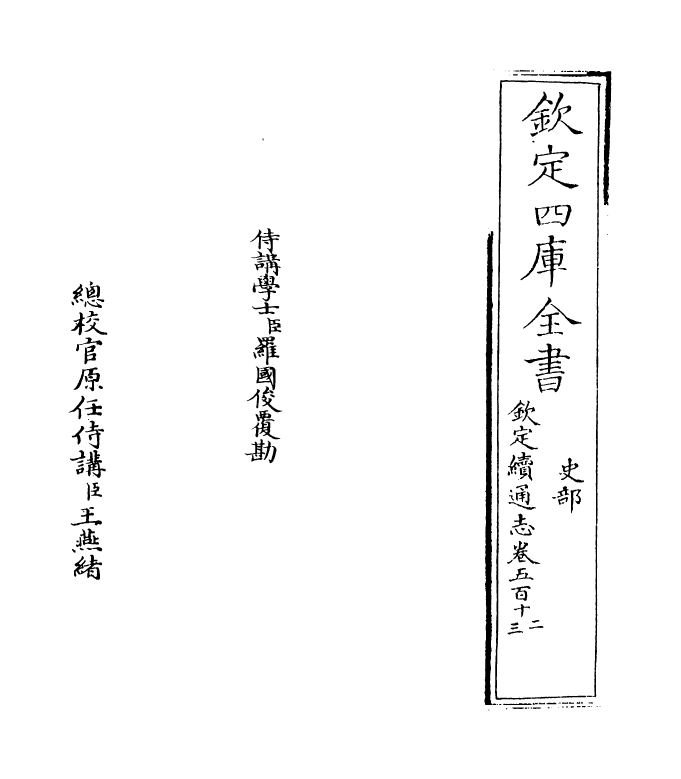 欽定四庫全書
史部
欽定續通志卷五百十二三
侍講學士臣羅國俊覆勘
總校官原任侍講臣王燕緒